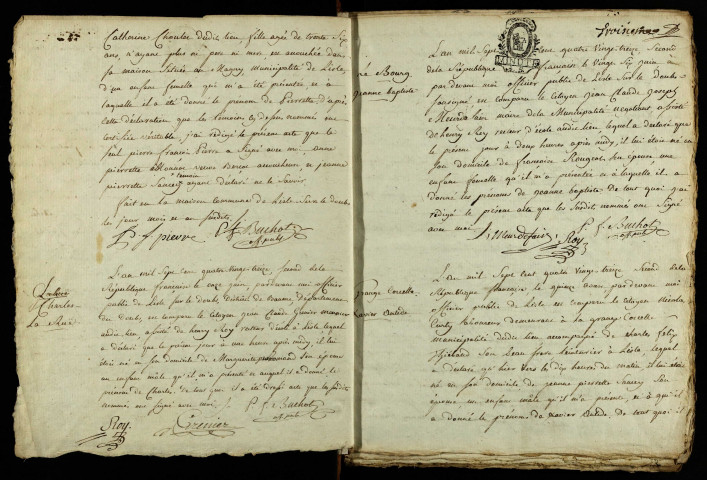 Catherine Choulet dudit lieu fille agée de trente six
ans, n'ayant plus ni pere ni mere est accouchée dans
sa maison située au Magny, municipalité de Lisle,
d'un enfant femelle qui m'a été présenté et à
laquelle il a été donné le prénom de Pierrette, d'après
cette déclaration que les témoins cy dessus nommés ont
certifiée véritable, j'ai rédigé le présent acte que le
seul pierre françois Pierre a signé avec moi. anne
pierrette veuve accoucheuse, et jeanne
pierrette Sancey témoin ayant déclaré ne le savoir
fait en la maison commune de Lisle sur le doubs
les jour mois et an susdits
P. f. pierre P. f. Buchot
off. publ.
Charles
L'an mil sept cent quatre vingt treize, second de la
République française le onze juin, pardevant moi officier
public de Lisle sur le doubs, district de Baume, département
du doubs, est comparu le citoyen jean Claude Grenier manouvrier
audit lieu, assisté de henry Roy recteur d'école à Lisle, lequel
a déclaré que le présent jour à une heure après midy, il lui
était né en son domicile de Marguerite son épouse
un enfant mâle qu'il m'a présenté et auquel il a donné le
prénom de Charles. de tout quoi il a été dressé acte que les susdits
nommés ont signé avec moi P. f. Buchot
off. publ.
Roy Grenier
Le Bourg
jeanne baptiste
L'an mil sept cent quatre vingt treize, second
de la République française le vingt six juin à
par devant moi officier public de Lisle sur le doubs
soussigné est comparu le citoyen jean Claude joseph
Meurdefain maire de la Municipalité negotiant assisté
de henry Roy recteur d'école audit lieu, lequel a déclaré que
le présent jour à deux heures après midy, il lui étoit né en
son domicile de françoise Rougeot son épouse une
enfant femelle qu'il m'a présentée et à laquelle il a
donné les prénoms de jeanne baptiste de tout quoi j'ai
rédigé le présent acte que les susdits nommés ont signé
avec moi P. f. Buchot
off. publ.
Meurdefain Roy
Grange Corcelle
Xavier
L'an mil sept cent quatre vingt treize, second de la
République française le quinze juin, par devant moi
officier public de Lisle est comparu le citoyen Nicolas
laboureur demeurant à la grange Corcelle
municipalité dudit lieu accompagné de charles felix
son beau frère à Lisle, lequel
a déclaré qu'hier vers les dix heures du matin il lui étoit
né en son domicile de jeanne pierrette Sancey son
épouse un enfant mâle qu'il m'a présenté, et à qui il
a donné le prénom de xavier de tout quoi il